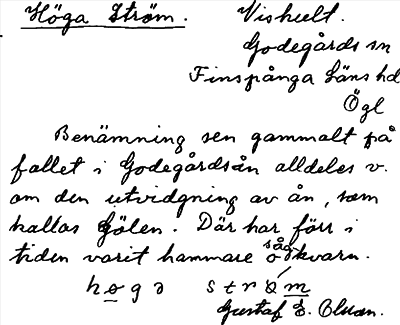 Höga Ström. Vishult.
Godegårds sn
Finspånga läns hd
Ögl
Benämning sen gammalt på
fallet i Godegårdsån alldeles v.
om den utvidgning av ån, som
kallas Gölen. Där har förr i
tiden varit hammare o sågkvarn.
höga ström
Gustaf E. Olsson.